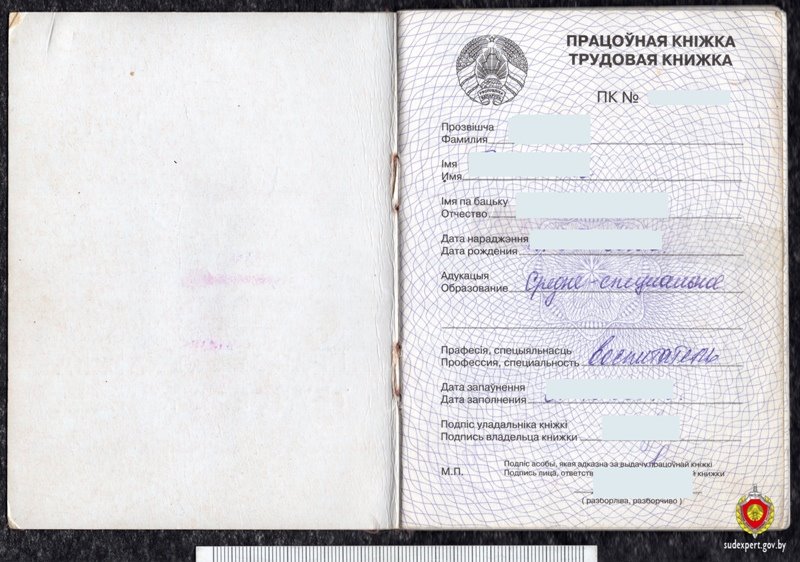 ПРАЦОЎНАЯ КНІЖКА
ТРУДОВАЯ КНИЖКА
ПК №
Прозвішча
Фамилия
Імя
Имя
Імя па бацьку
Отчество
Дата нараджэння
Дата рождения
Адукацыя
Образование Средне-специальное
Прафесія, спецыяльнасць
Профессия, специальность воспитатель
Дата запаўнення
Дата заполнения
Подпіс уладальніка кніжкі
Подпись владельца книжки
М.П.
Подпіс асобы, якая адказна за выдачу працоўнай кніжкі
Подпись лица, ответств й книжки
( разборліва, разборчиво )
sudexpert.gov.by